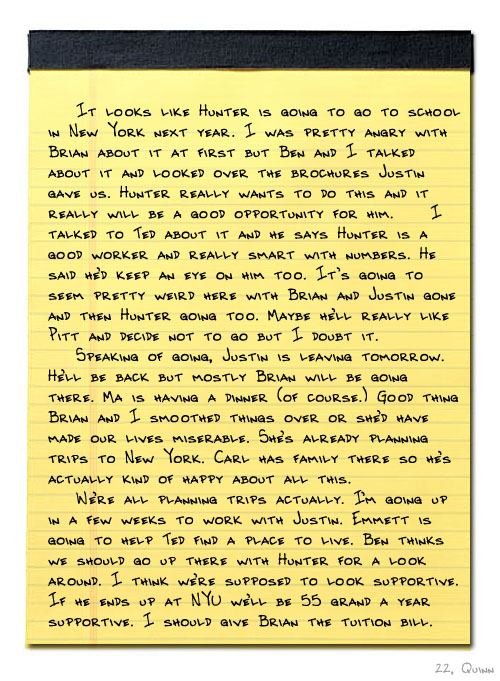 It looks like Hunter is going to go to school
in New York next year. I was pretty angry with
Brian about it at first but Ben and I talked
about it and looked over the brochures Justin
gave us. Hunter really wants to do this and it
really will be a good opportunity for him. I
talked to Ted about it and he says Hunter is a
good worker and really smart with numbers. He
said he'd keep an eye on him too. It's going to
seem pretty weird here with Brian and Justin gone
and then Hunter going too. Maybe he'll really like
Pitt and decide not to go but I doubt it.
Speaking of going, Justin is leaving tomorrow.
He'll be back but mostly Brian will be going
there. Ma is having a dinner (of course.) Good thing
Brian and I smoothed things over or she'd have
made our lives miserable. She's already planning
trips to New York. Carl has family there so he's
actually kind of happy about all this.
We're all planning trips actually. I'm going up
in a few weeks to work with Justin. Emmett is
going to help Ted find a place to live. Ben thinks
we should go up there with Hunter for a look
around. I think we're supposed to look supportive.
If he ends up at NYU we'll be 55 grand a year
supportive. I should give Brian the tuition bill.
22, Quinn